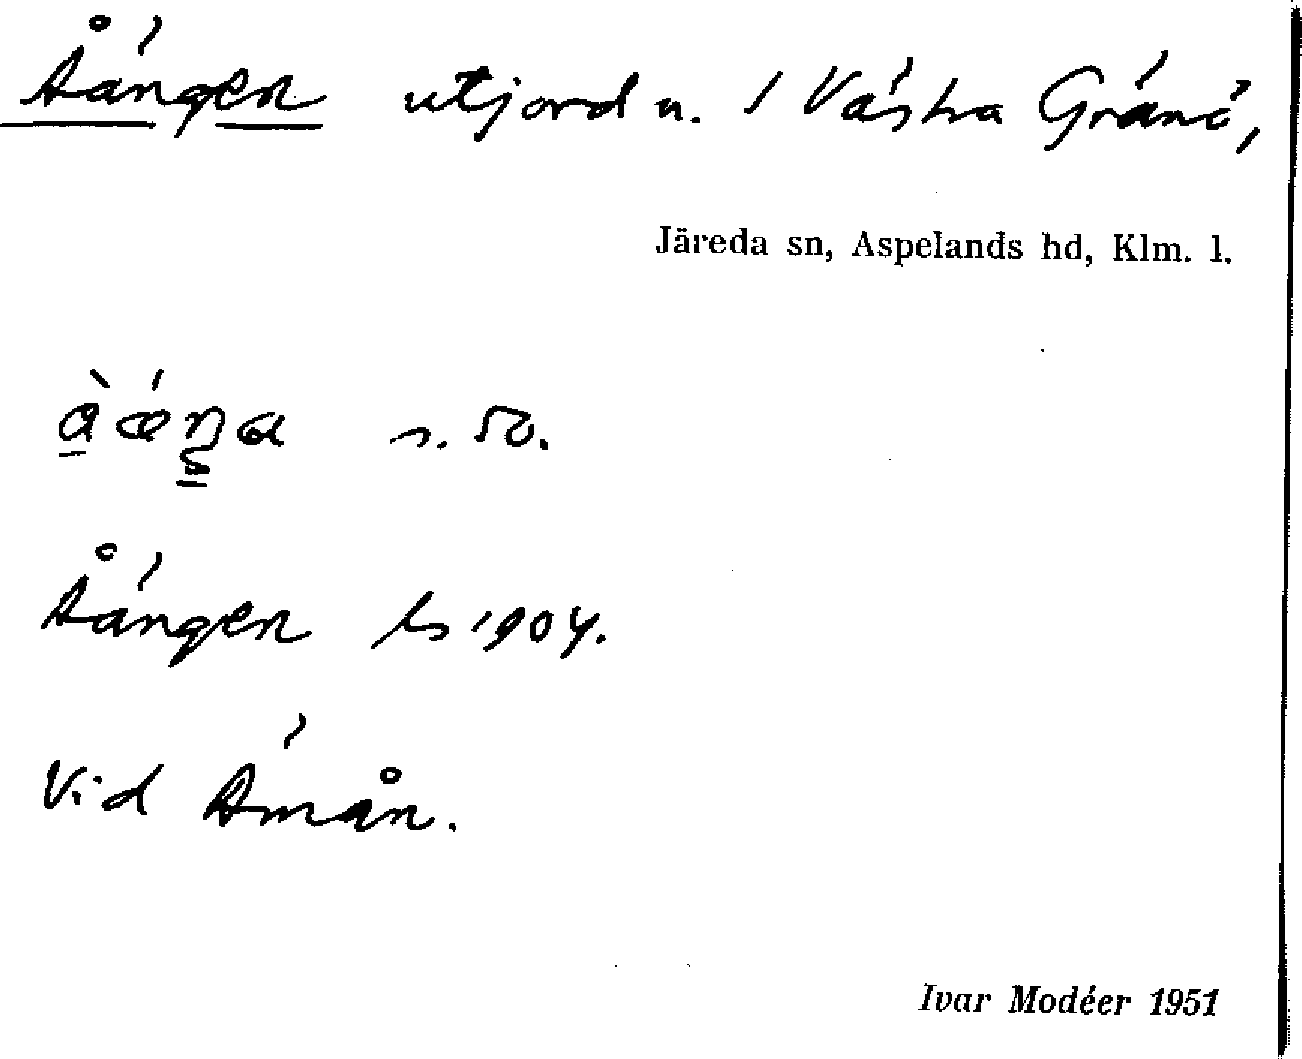 Åängen utjord u. 1 Västra Gränö,
Järeda sn, Aspelands hd, Klm. l.
s. 50.
Åängen ls 1904.
Vid Ämån.
Ivar Modéer 1951